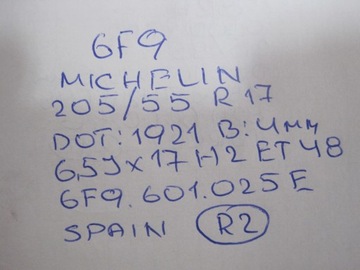 6F9
MICHELIN
205/55 R 17
DOT: 1921 B: 4мм
6,5J x 17 H2 ET 48
6F9.601.025E
SPAIN R2